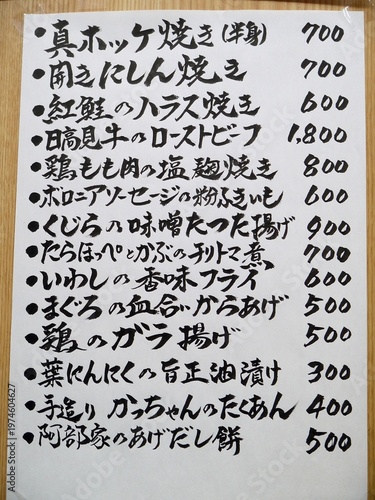 •真ホッケ焼き(半身) 700
•開きにしん焼き 700
•紅鮭のハラス焼き 600
•日高見牛のローストビーフ 1,800
•鶏もも肉の塩麹焼き 800
•ボロニアソーセージの粉ふきいも 600
•くじらの味噌たつた揚げ 900
•たらほっぺとかぶのチリトマ煮 700
•いわしの香味フライ 600
•まぐろの血合いからあげ 500
•鶏のガラ揚げ 500
•葉にんにくの旨正油漬け 300
•手造りかっちゃんのたくあん 400
•阿部家のあげだし餅 500
Adobe Stock | #1974604627